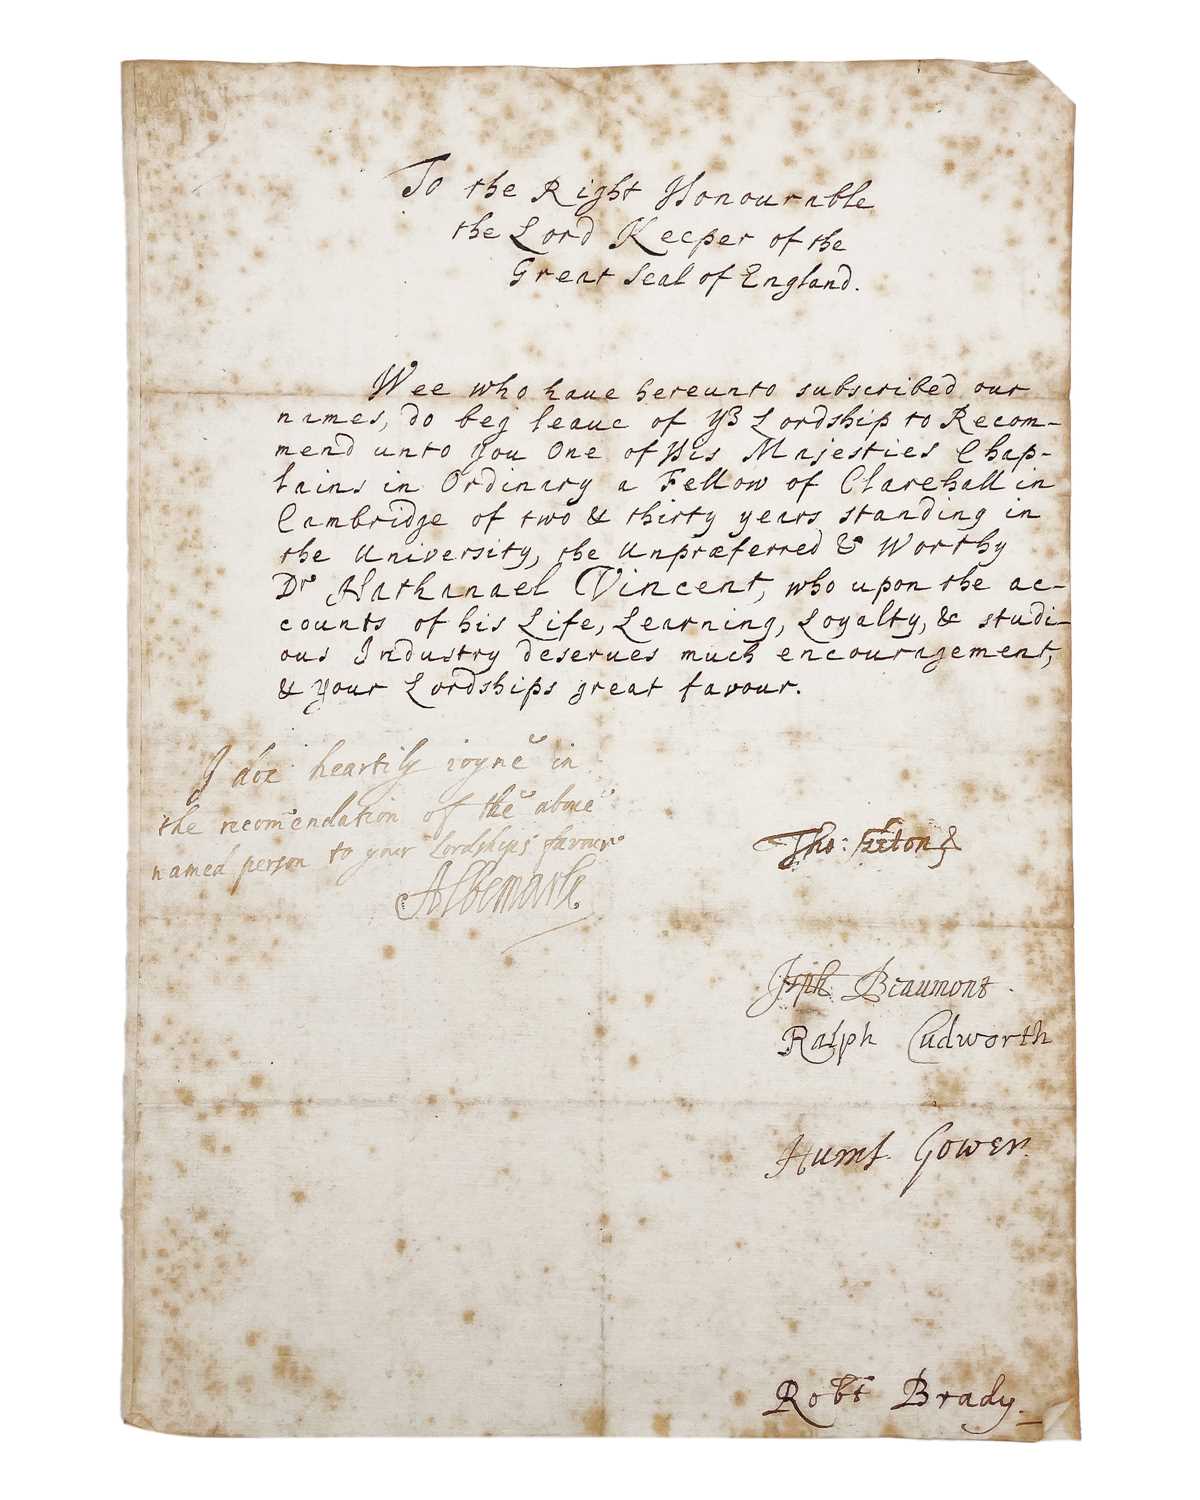 To the Right Honourable
the Lord Keeper of the
Great Seal of England.
Wee who haue hereunto subscribed our
names, do beg leaue of yr Lordship to Recom-
mend unto you One of His Majesties Chap-
lains in Ordinary a Fellow of Clarehall in
Cambridge of two & thirty years standing in
the University, the Unpræferred & Worthy
Dr Nathanael Vincent, who upon the ac-
counts of his Life, Learning, Loyalty, & studi-
ous Industry deserues much encouragement,
& your Lordships great favour.
I doe heartily ioyne in
the recomendation of the aboue
named person to your Lordships favour
Albemarle
Tho:
Joseph Beaumont.
Ralph Cudworth
Humf. Gower.
Robt Brady.